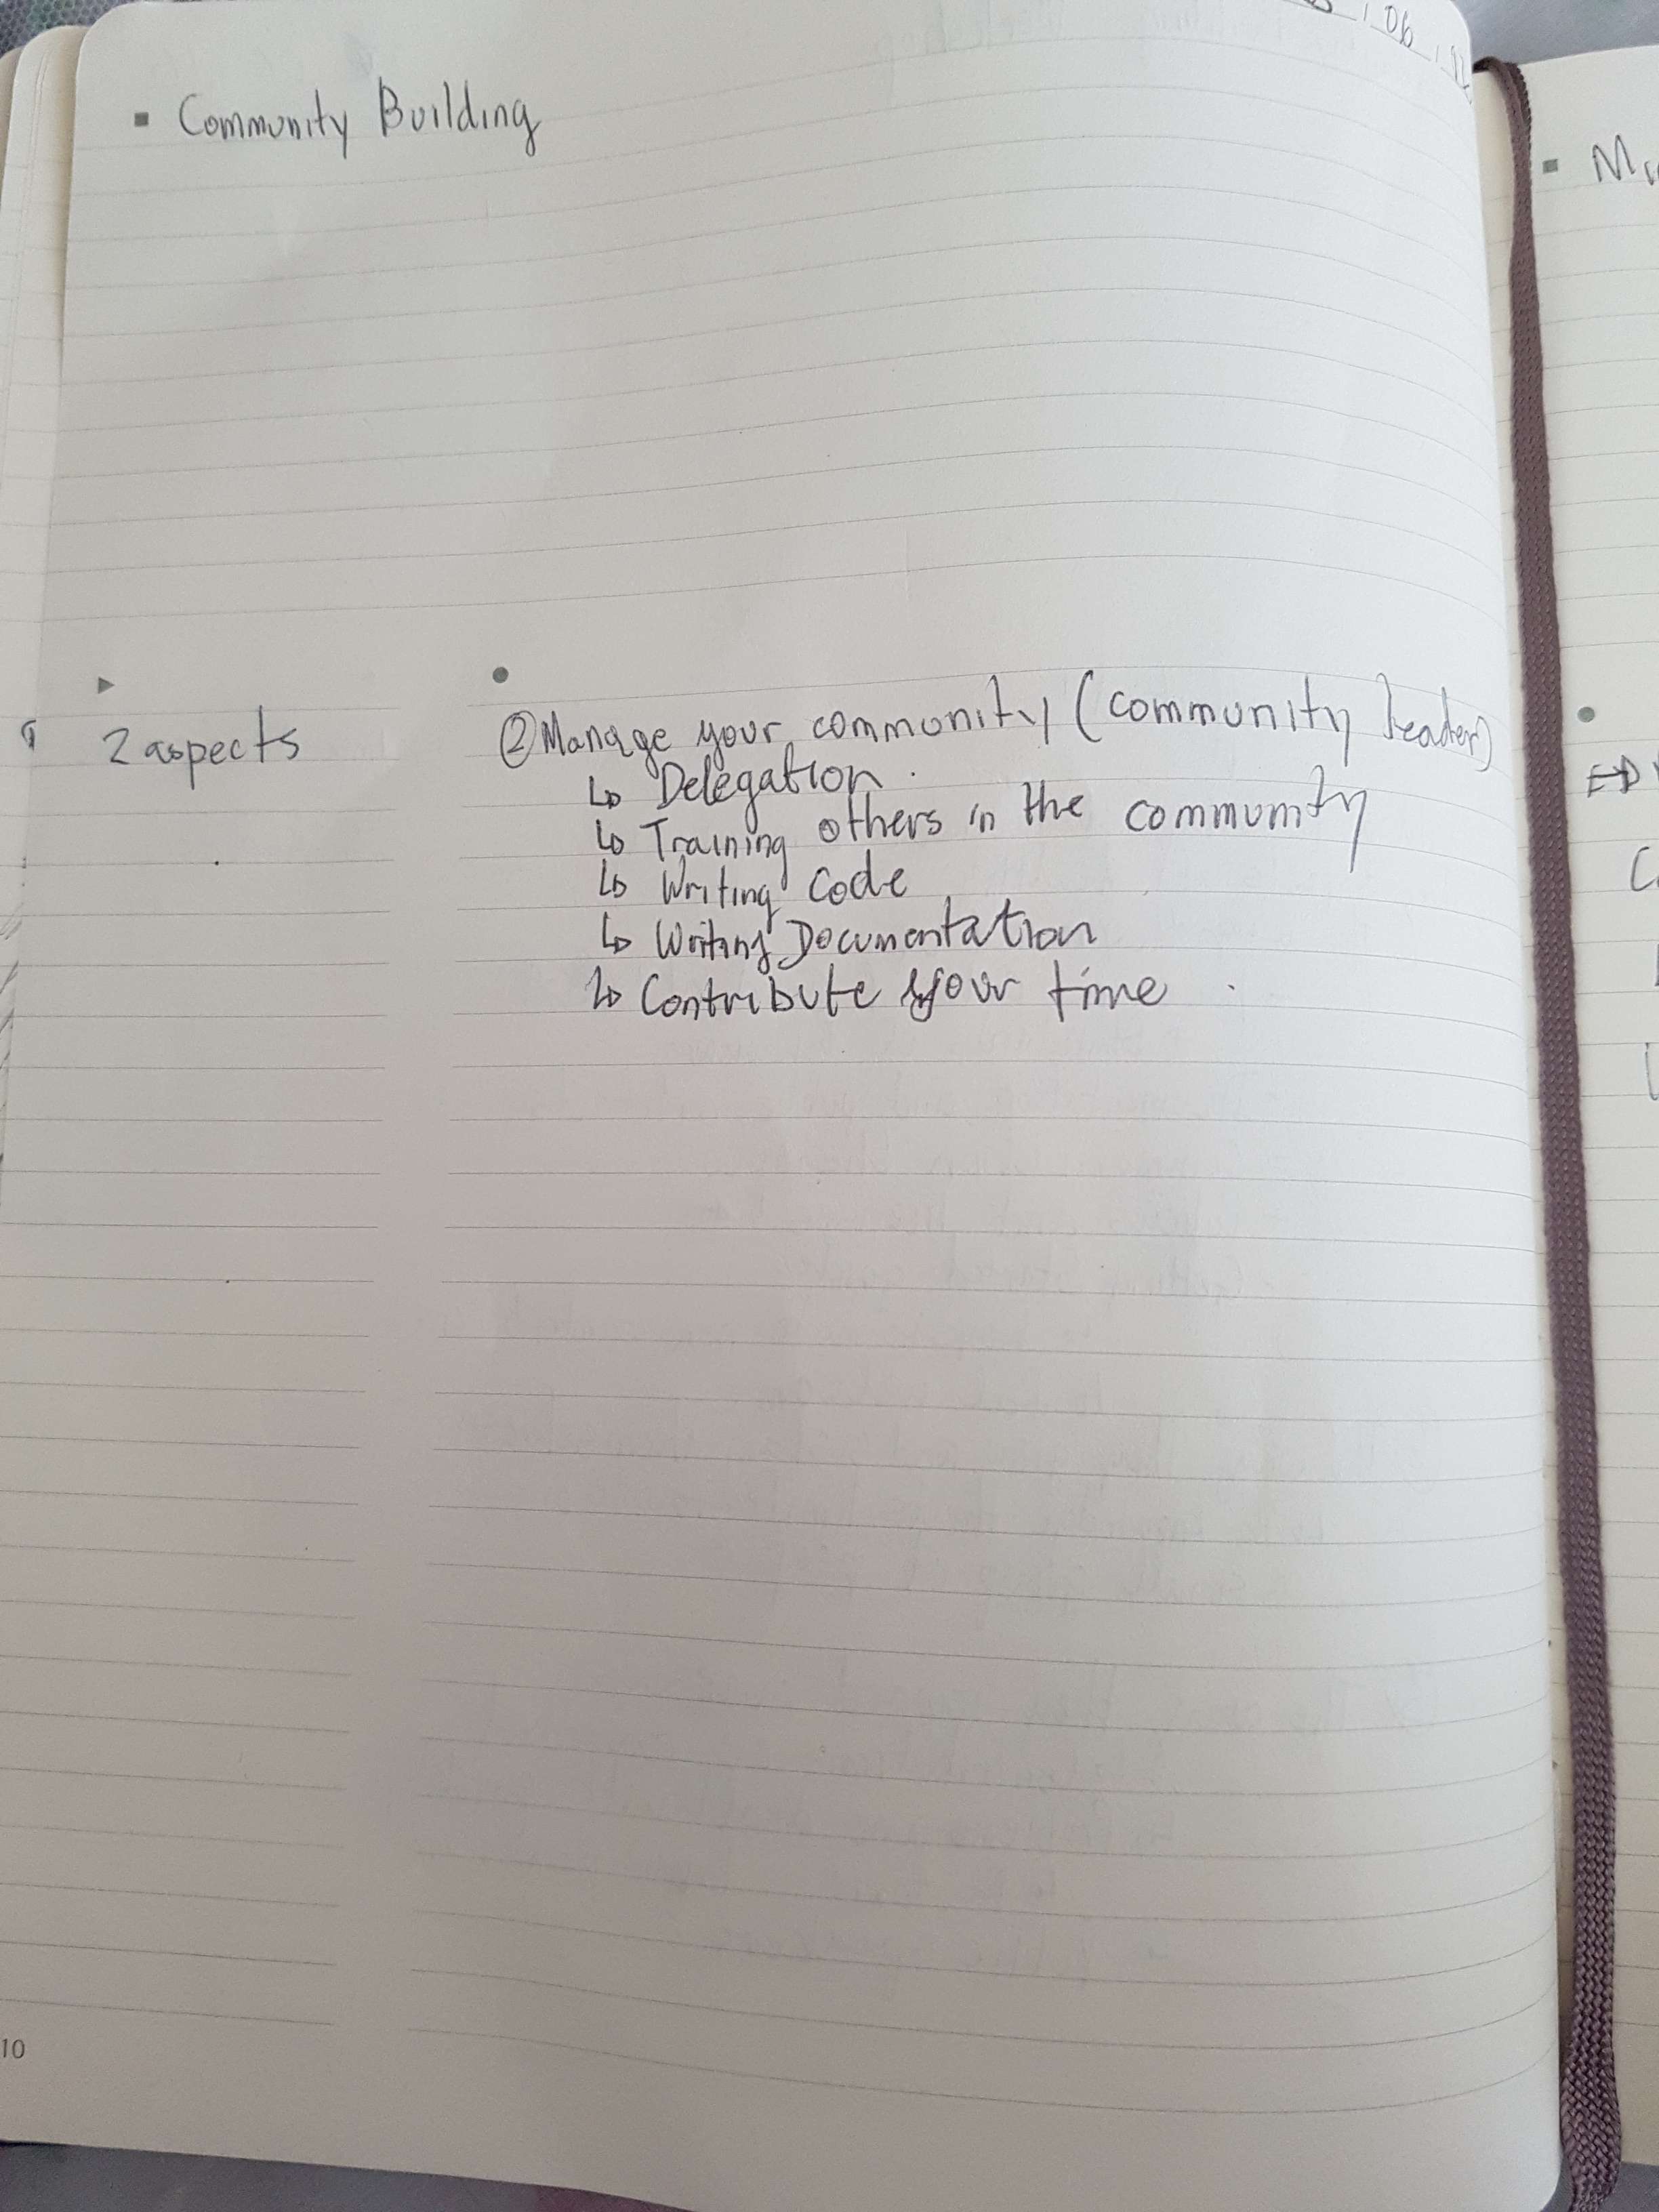 Community Building
2 aspects
② Manage your community (community leader)
↳ Delegation.
↳ Training others in the community
↳ Writing Code
↳ Writing Documentation
↳ Contribute your time.
10